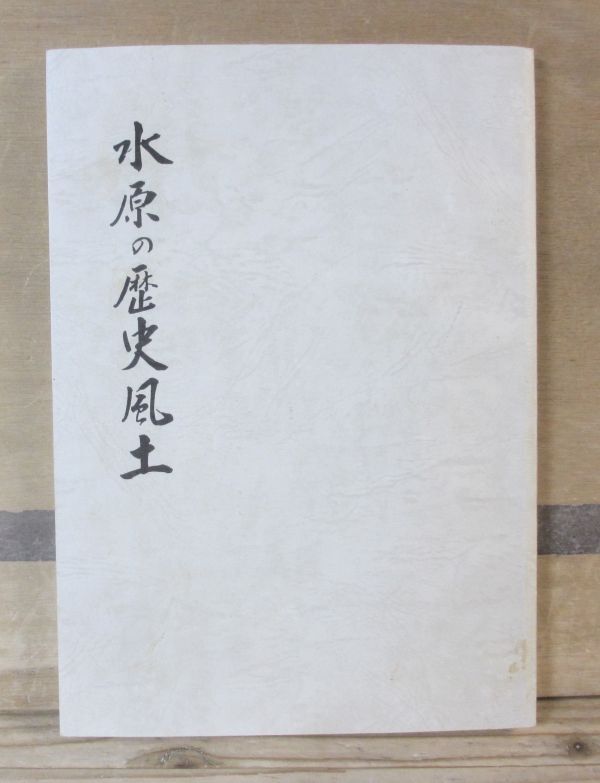 水原の歴史風土